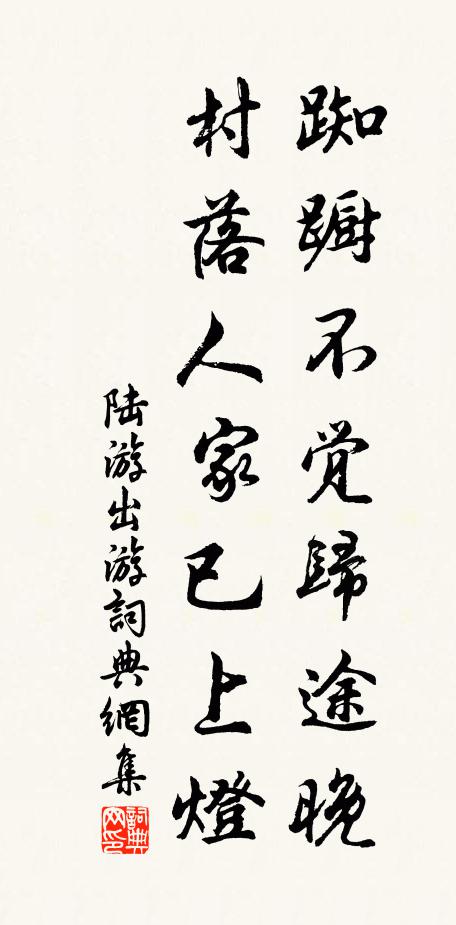 踟蹰不觉歸途晚
村落人家已上燈
陆游出游詞典網集
詞典网印